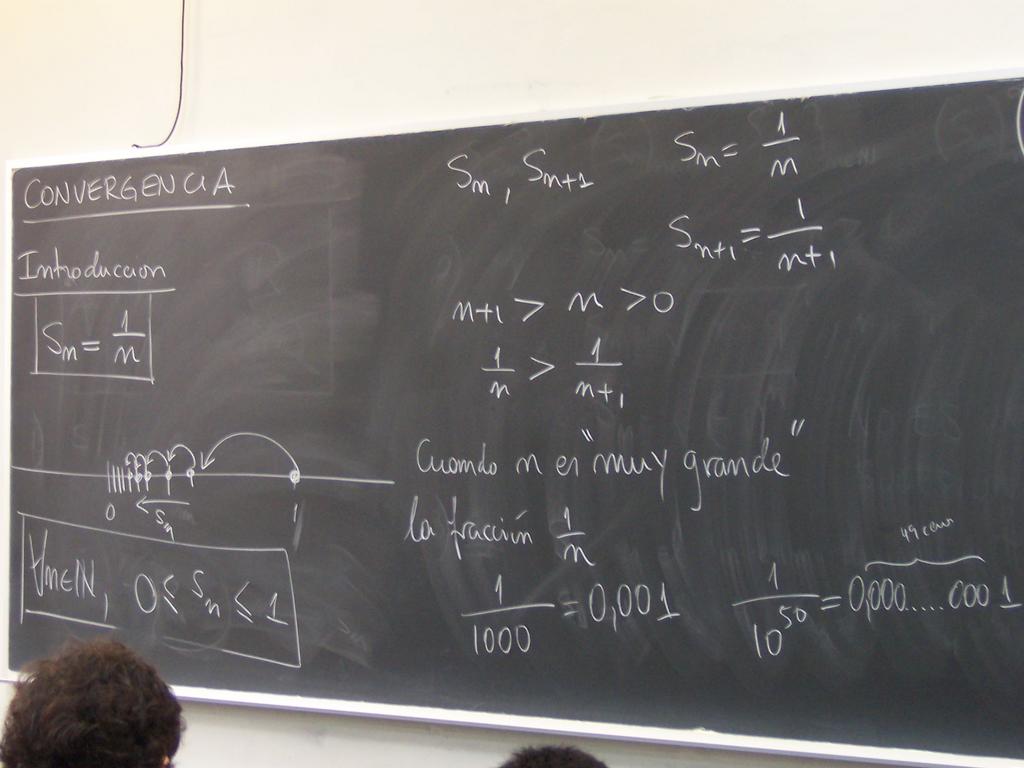 CONVERGENCIA
Introduccion
Sn = 1/n
0 1
Sn
∀n∈N, 0 ≤ Sn ≤ 1
Sn, Sn+1
Sn = 1/n
Sn+1 = 1/n+1
n+1 > n > 0
1/n > 1/n+1
Cuando n es "muy grande"
la fracción 1/n
1/1000 = 0,001
49 ceros
1/10^50 = 0,000.....0001